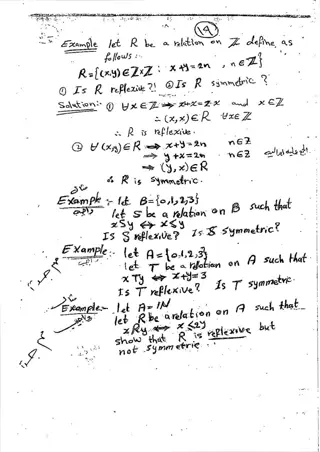 19
Example let R be a relation on ℤ define as
follows:-
R={(x,y)∈ℤxℤ : x+y=2n , n∈ℤ}
① Is R reflexive?! ② Is R symmetric?
Solution:- ① ∀x∈ℤ ⇒ x+x=2x and x∈ℤ
∴ (x,x)∈R ∀x∈ℤ
∴ R is reflexive.
② ∀(x,y)∈R ⇒ x+y=2n n∈ℤ
⇒ y+x=2n n∈ℤ
⇒ (y,x)∈R
∴ R is symmetric.
Example:- let B={0,1,2,3}
let S be a relation on B such that
xSy ⇔ x≤y
Is S reflexive? Is S symmetric?
Example:- let A={0,1,2,3}
let T be a relation on A such that
xTy ⇔ x+y=3
Is T reflexive? Is T symmetric.
Example:- let A=ℕ
let R be a relation on A such that
xRy ⇔ x≤2y
show that R is reflexive but
not symmetric